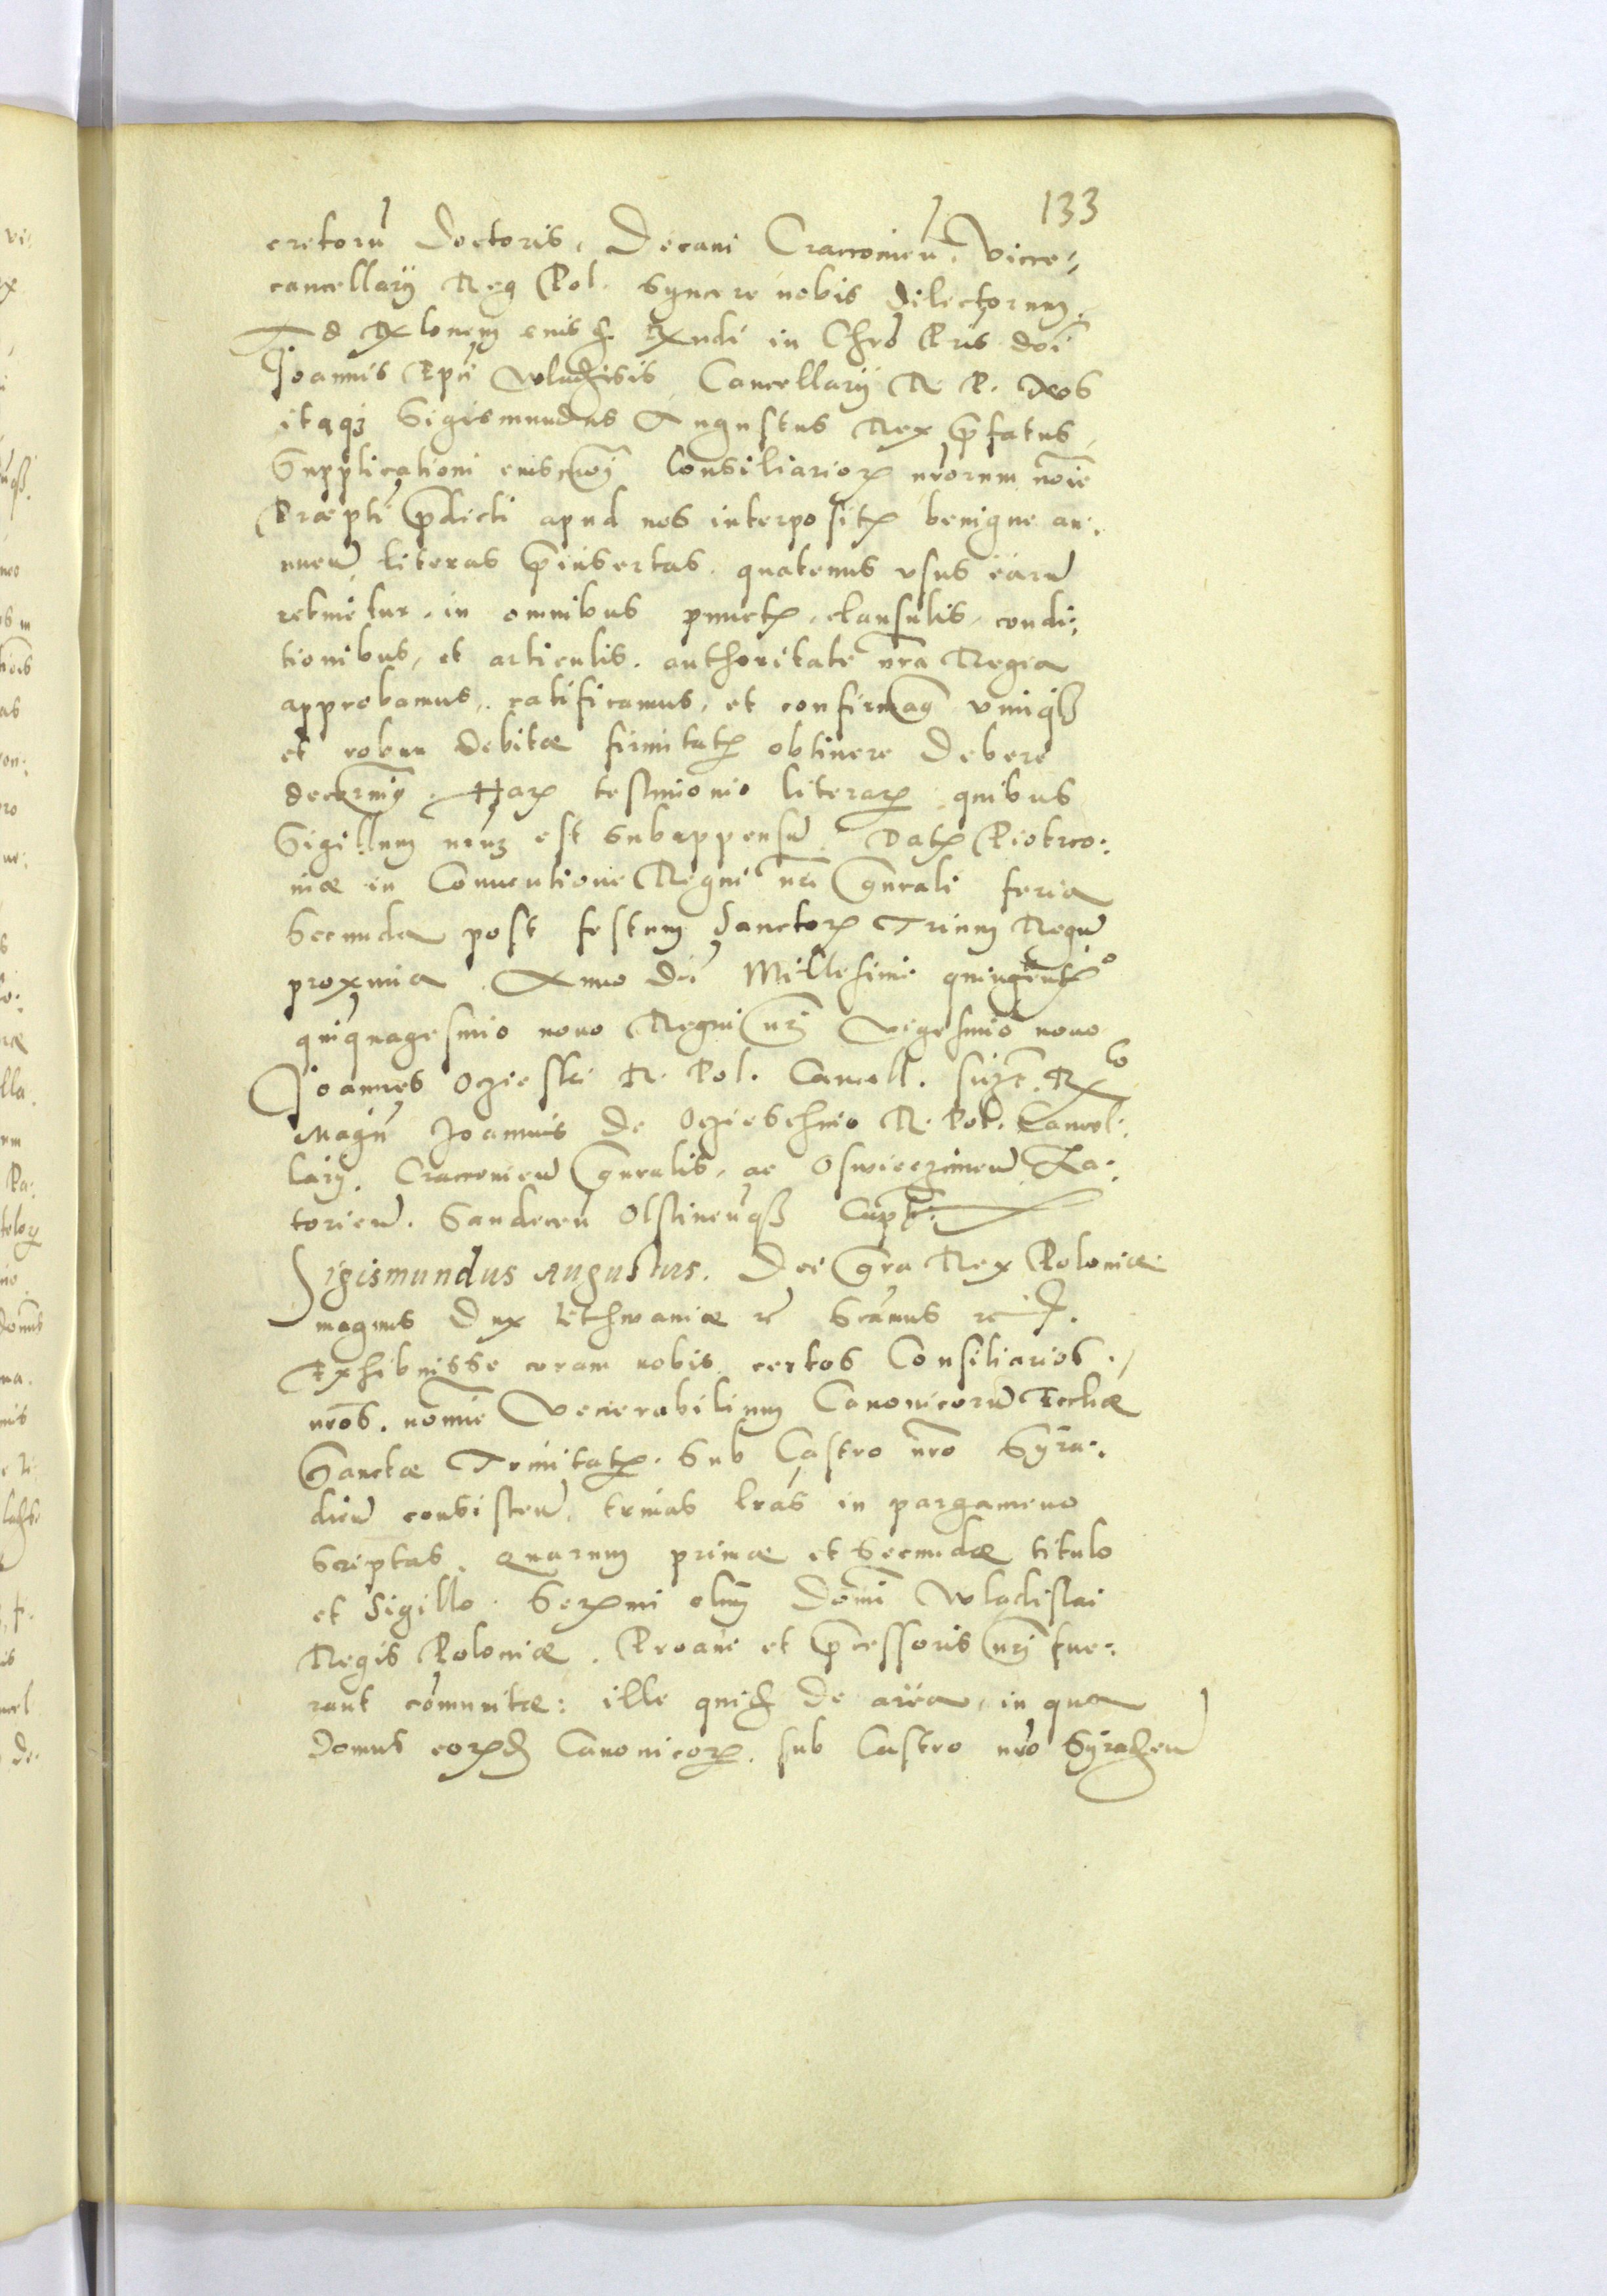 133
cretoru Doctoris, Decani Cracovien, Vicce-
cancellarij Reg Pol. Syncere nobis dilectorum.
Ad Rlonem eiusd Rndi in Chro Pris dni
Joannis Epi Wladisis, Cancellarij R. P. Nos
itaqz Sigismundus Augustus Rex pfatus
Supplicationi eiuscemoi Consiliarior nrorum noie
Præpti pdicti apud nos interposit benigne an-
nuen literas pinsertas. quatenus usus earu
retinetur. in omnibus punct, clausulis, condi-
tionibus, et articulis. authoritate nra Regia
approbamus, ratificamus, et confirmam
et robur debitæ firmitat obtinere debere
decernim. Har testimonio literar quibus
Sigillum nrum est subappensu. Dat Piotrco-
niæ in Conventione Regni nri gnrali feria
Secunda post festum Sanctor Trium Regu
proxima. Anno dni Millesimo quingent°
quiquagesimo nono Regni nri vigesimo nono
Joannes Oczieski R. Pol. Cancell. ssz. Rlo
Magci Joannis de Oczieschino R. Pol. Cancel-
larij. Cracovien gnralis, ac Oswieczimen Za-
torien. Sandecen Olstinenqz Capit.
Sigismundus Augustus. Dei gra Rex Poloniæ
magnus Dux Lithwaniæ rc Scimus rc
Exhibuisse coram nobis certos Consiliarios
nros. nomine Venerabilium Canonicoru Eccliæ
Sanctæ Trinitat. Sub Castro nro Syra-
dien consisten. trinas lras in pargameno
Scriptas. quarum primæ et Secundæ titulo
et Sigillo. Serxmi olim Domi Wladislai
Regis Poloniæ. Proavi et pcessoris nri fue-
rant comunitæ: ille quid de area, in qua
Domus eord Canonicor. sub Castro nro Syradien